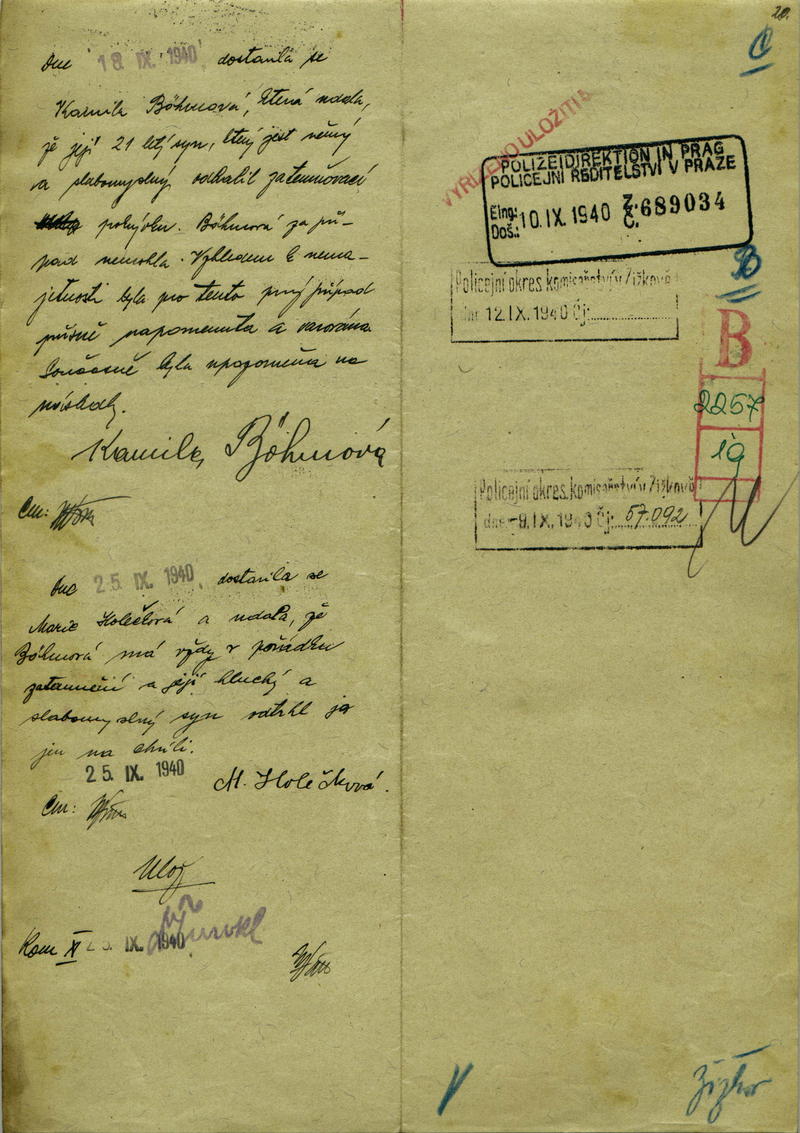 Dne 18. IX. 1940 dostavila se
Kamila Böhmová, která udala,
že její 21 letý syn, který jest němý
a slabomyslný odhalil zatemňovací
pokrývku. Böhmová za pří-
pad nemohla. Vzhledem k nema-
jetnosti byla pro tento prvý případ
přísně napomenuta a varována
Současně byla upozorněna na
následky.
Kamila Böhmová
Čm:
Dne 25. IX. 1940 dostavila se
Marie Holečková a udala, že
Böhmová má vždy v pořádku
zatemnění a její hluchý a
slabomyslný syn odtrhl je
jen na chvíli.
25. IX. 1940
M. Holečková.
Čm:
Ulož
Kom X 25. IX. 1940
20.
C
VYŘÍZENO ULOŽITI
POLIZEIDIREKTION IN PRAG
POLICEJNÍ ŘEDITELSTVÍ V PRAZE
Eing.:
Doš.: 10. IX. 1940 Z. Č. 689034
B
Policejní okres. komisařství v Žižkově
dne 12. IX. 1940 Čj:
B
2257
19
Policejní okres. komisařství v Žižkově
dne -9. IX. 1940 Čj: 57.092
Žižkov